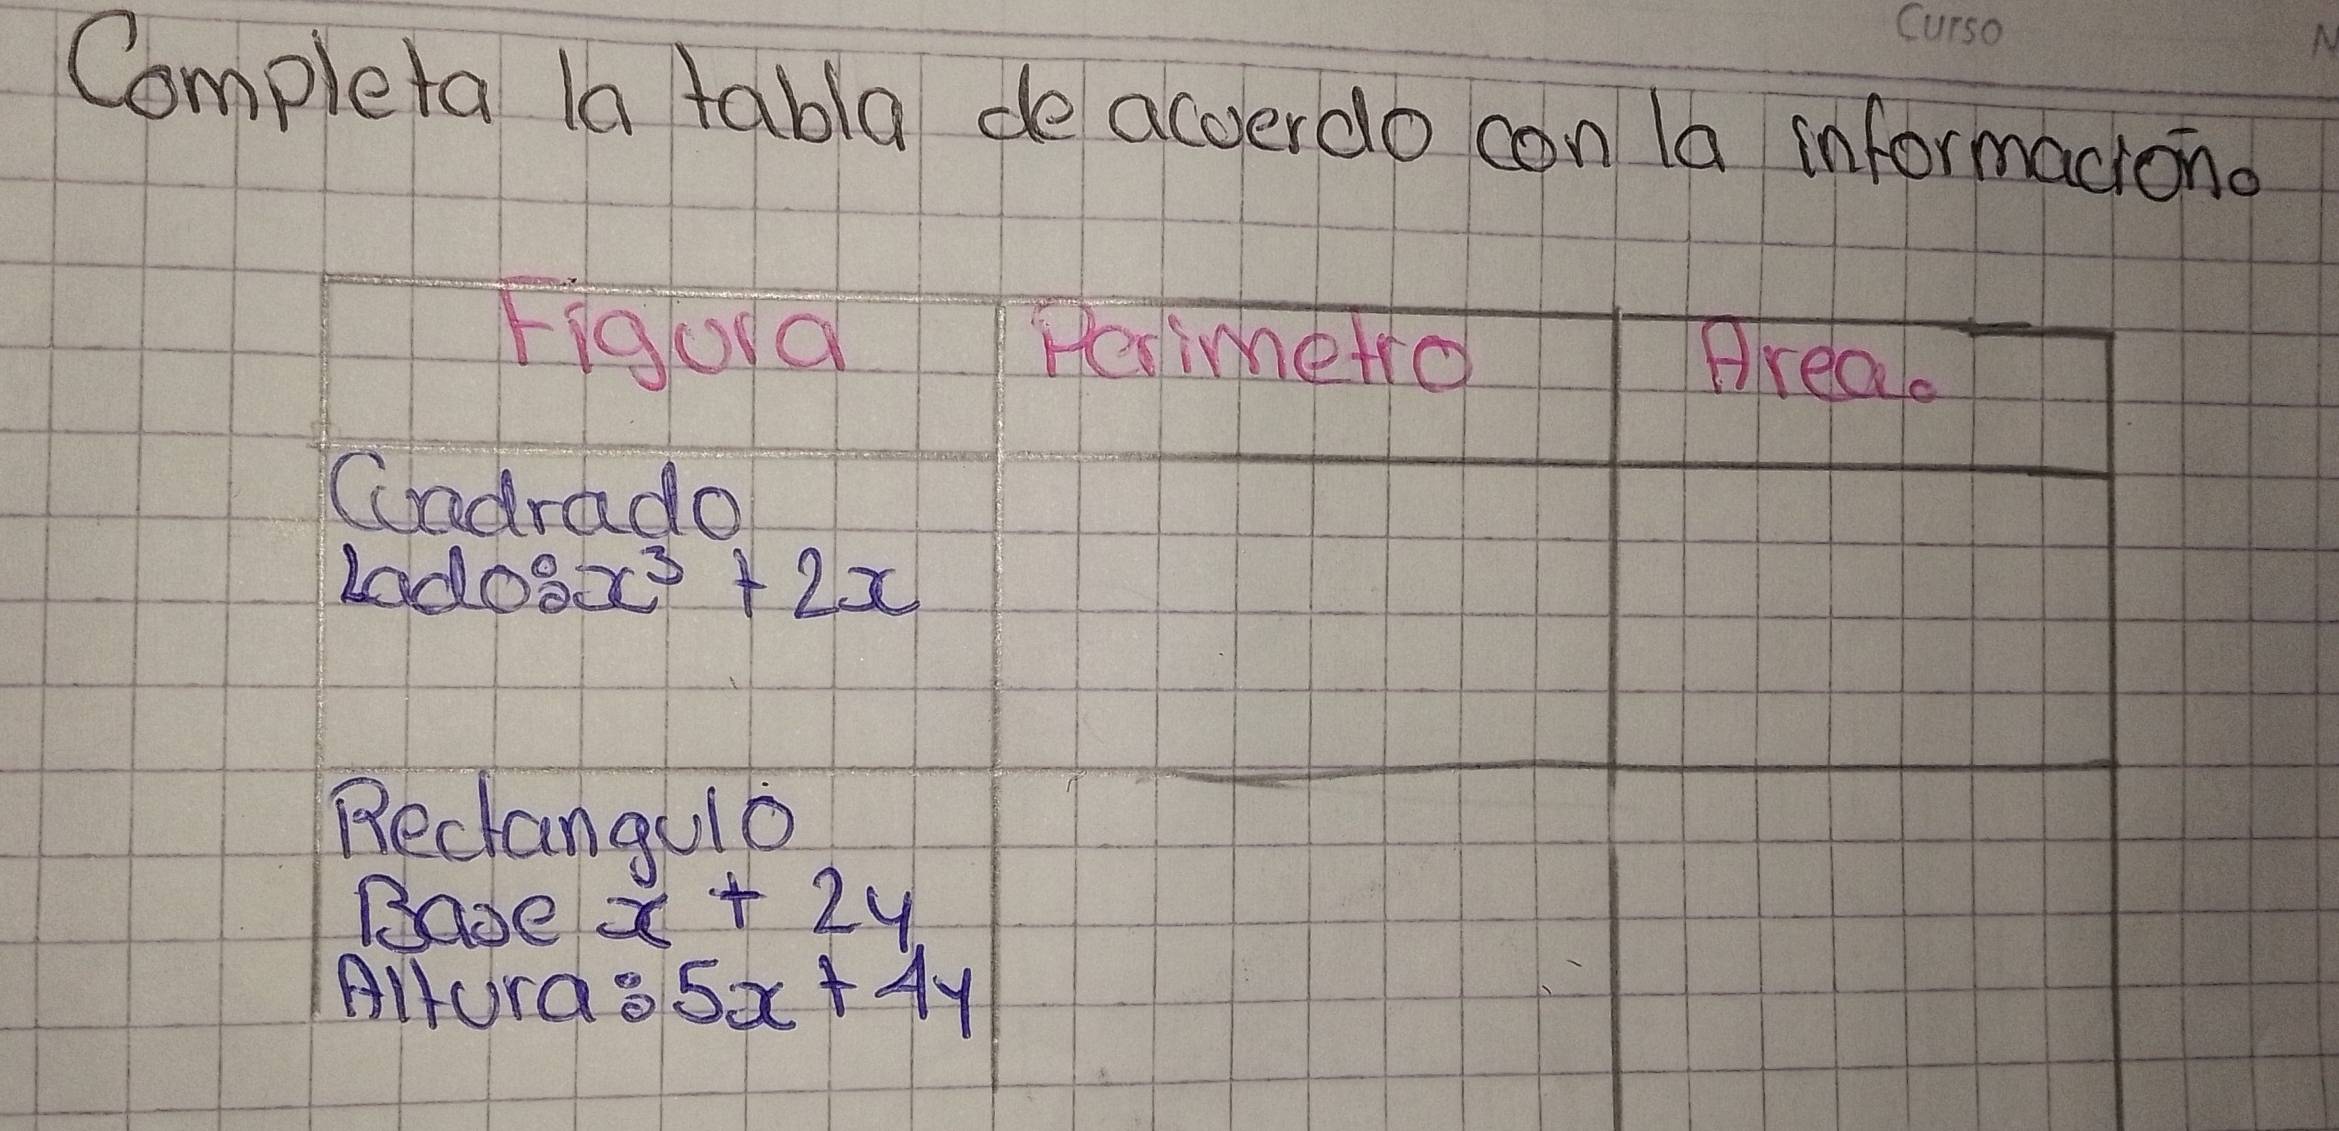 Curso
Completa la tabla de acuerdo con la información.
Figura Perimetro Area.
Cuadrado
Lado: x³ + 2x
Rectangulo
Base x + 2y
Altura: 5x + 4y